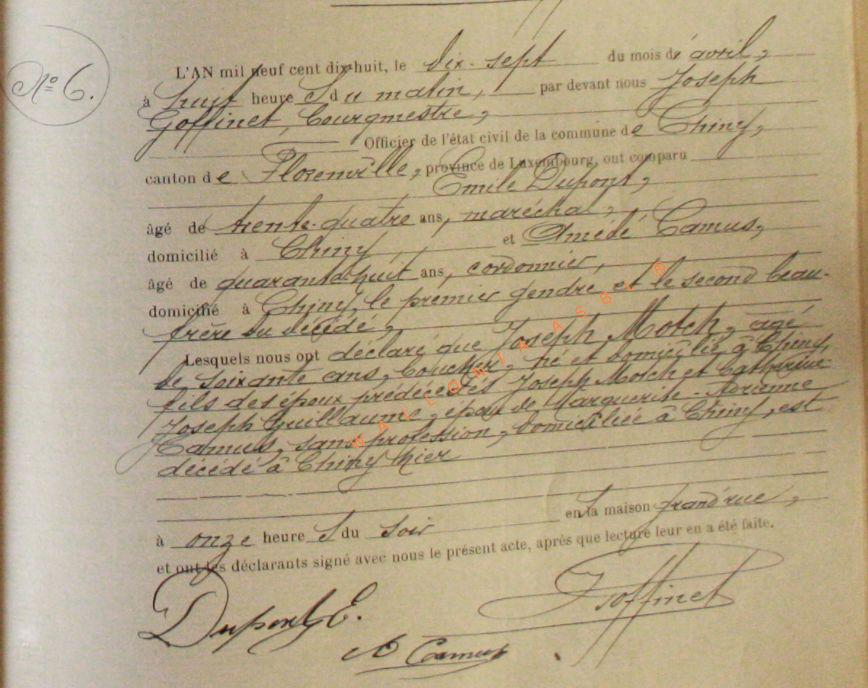 N° 6.
L'AN mil neuf cent dix-huit, le dix-sept du mois d'avril,
à huit heure s du matin, par devant nous Joseph
Goffinet, bourgmestre,
Officier de l'état civil de la commune de Chiny,
canton de Florenville, province de Luxembourg, ont comparu
Emile Dupont,
âgé de trente-quatre ans, maréchal,
domicilié à Chiny et Amédé Camus,
âgé de quarante-huit ans, cordonnier,
domicilié à Chiny, le premier gendre et le second beau-
frère du décédé,
Lesquels nous ont déclaré que Joseph Motch, âgé
de soixante ans, boucher, né et domicilié à Chiny,
fils des époux prédécédés Joseph Motch et Catherine
Joseph Guillaume, époux de Marguerite-Adrienne
Camus, sans profession, domiciliée à Chiny, est
décédé à Chiny hier
à onze heure s du soir en la maison grand'rue,
et ont les déclarants signé avec nous le présent acte, après que lecture leur en a été faite.
Dupont E. Goffinet
A Camus